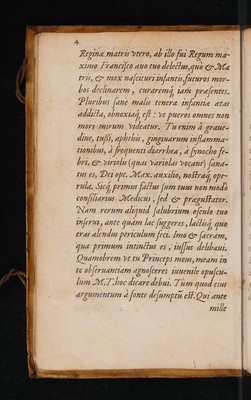 4
Reginæ matris vtero, ab illo fui Regum ma-
ximo Francisco auo tuo delectus, quò & Ma
tris, & mox nascituri infantis, futuros mor-
bos declinarem, curaremq́; iam præsentes.
Pluribus sanè malis tenera infantiæ ætas
addicta, obnoxiaq́; est: vt pueros omnes non
mori mirum videatur. Tu enim à graue-
dine, tussi, aphthis, gingiuarum inflamma-
tionibus, à frequenti diarrhea, à synocho fe-
bri, & viriolis (quas variolas vocant) sana-
tus es, Dei opt. Max. auxilio, nostraq́; ope-
rula. Sicq́; primus factus sum tuus non modò
consiliarius Medicus, sed & prægustator.
Nam rerum aliquid salubrium osculo tuo
inserui, ante quàm lac suggeres, lactisq́; quo
eras alendus periculum feci. Imo & sacram,
qua primum intinctus es, iussus delibaui.
Quamobrem vt tu Princeps meus, meam in
te obseruantiam agnosceres iuuenile opuscu-
lum M.T. hoc dicare debui. Tum quod eius
argumentum à fonte desumptũ est. Qui ante
mille